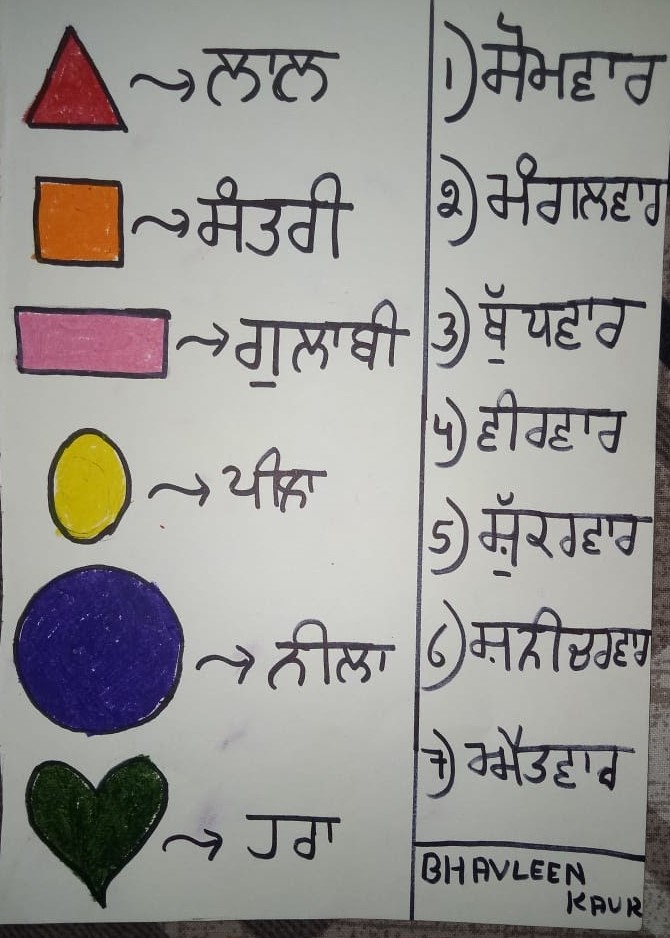 ਲਾਲ
ਸੰਤਰੀ
ਗੁਲਾਬੀ
ਪੀਲਾ
ਨੀਲਾ
ਹਰਾ
1) ਸੋਮਵਾਰ
੨) ਮੰਗਲਵਾਰ
3) ਬੁੱਧਵਾਰ
4) ਵੀਰਵਾਰ
5) ਸ਼ੁੱਕਰਵਾਰ
6) ਸ਼ਨੀਚਰਵਾਰ
7) ਐਤਵਾਰ
BHAVLEEN
KAUR